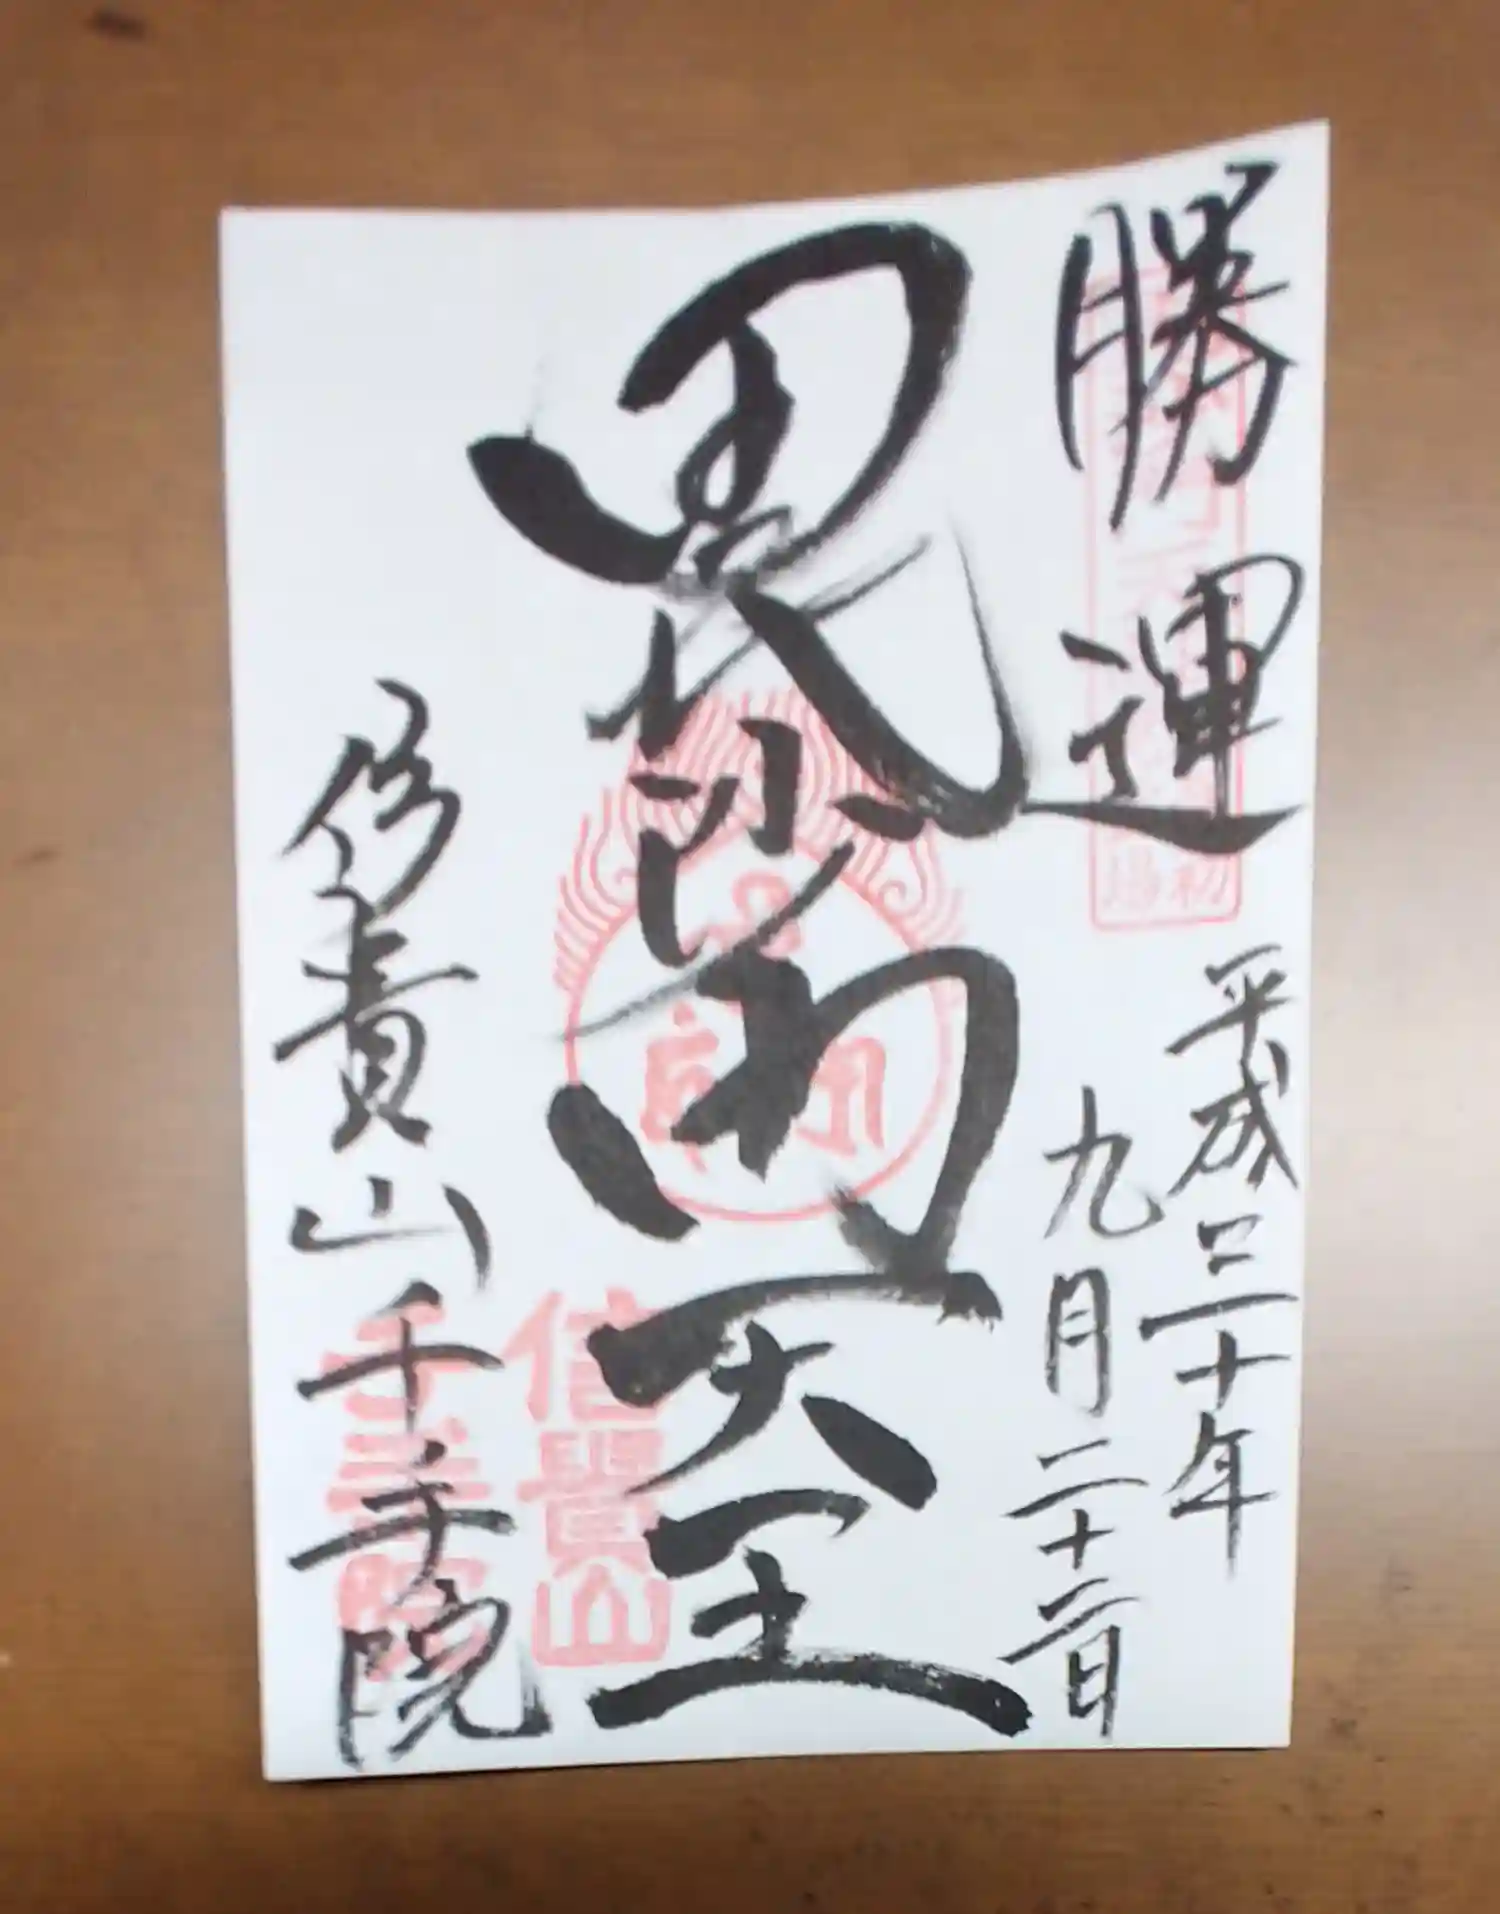 勝運
平成三十年
九月二十二日
毘沙門天王
信貴山千手院
信貴山
千手院